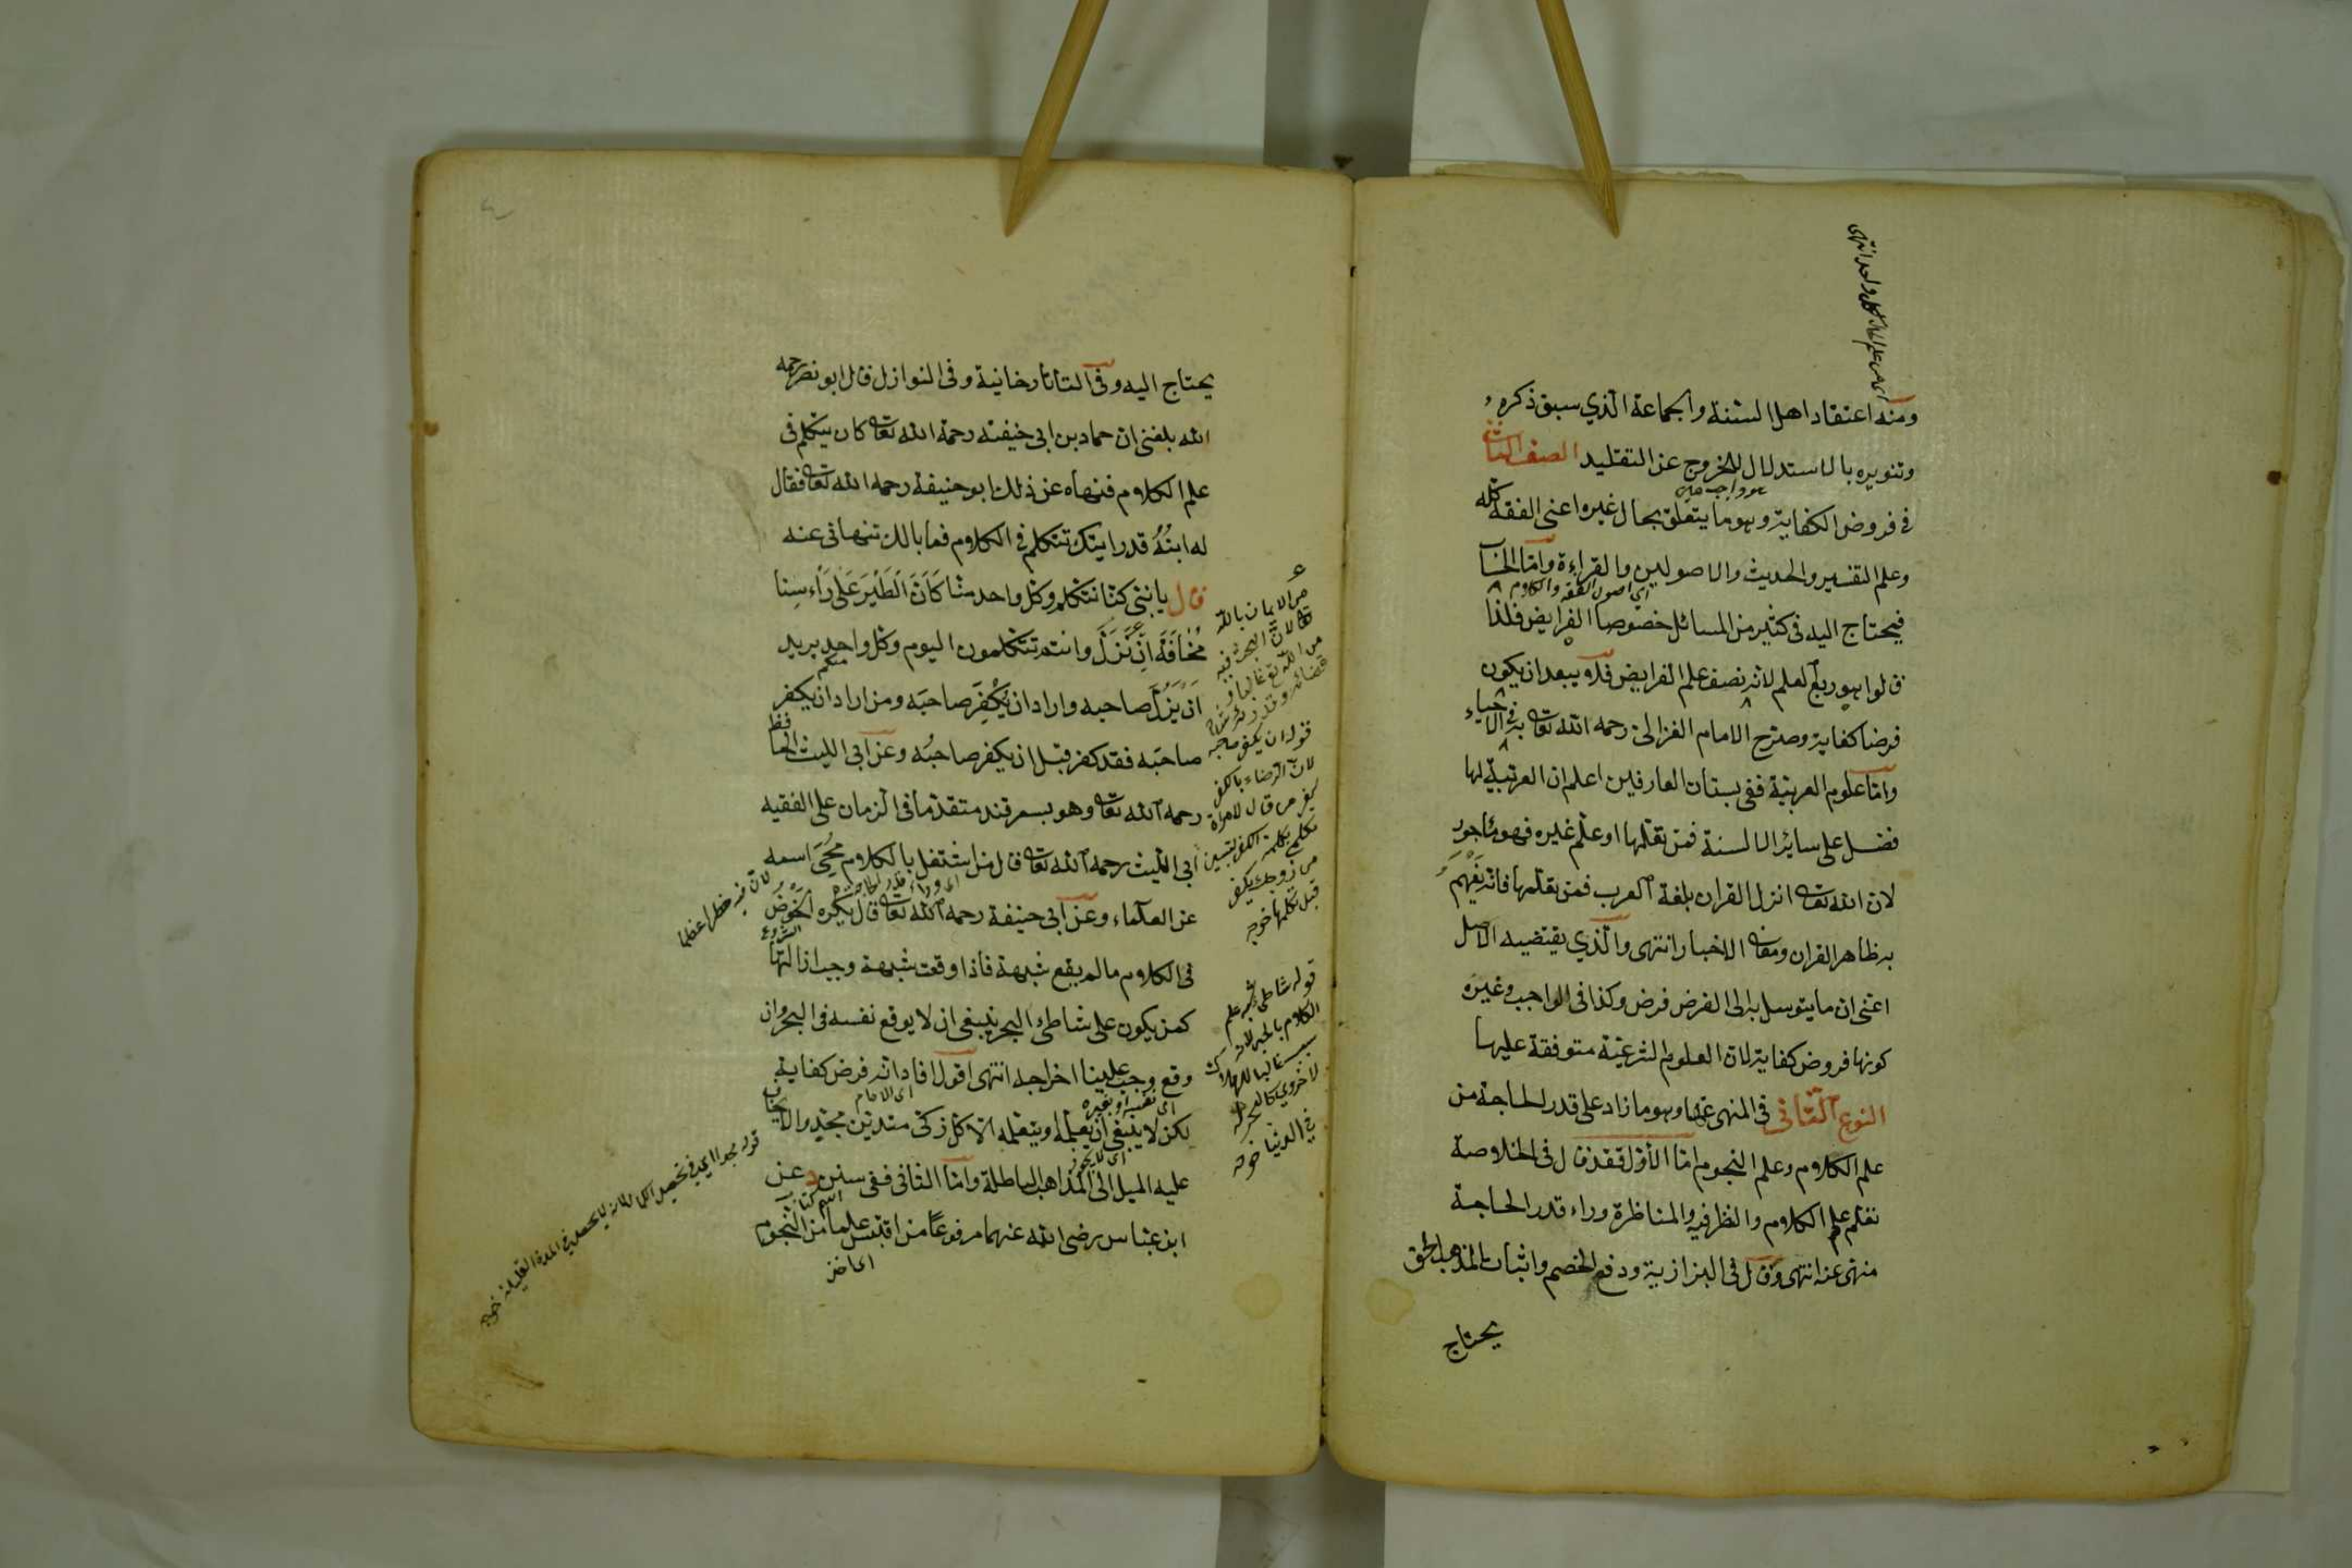 ومنه اعتقاد اهل السنة والجماعة الذي سبق ذكره
وتنويره بالاستدلال للخروج عن التقليد الصنف الثاني
في فروض الكفاية وهو ما يتعلق بحال غيره اعني الفقه كله
وعلم التفسير والحديث والاصولين والقراءة واما الحساب
اي اصول الفقه والكلام
فيحتاج اليه في كثير من المسائل خصوصا الفرايض فلذا
قالوا هو ربع العلم لانه نصف علم الفرايض فلا يبعد ان يكون
فرضا كفاية وصرح الامام الغزالى رحمه الله تعا به في الاحياء
واما علوم العربية ففى بستان العارفين اعلم ان العربية لها
فضل على سائر الالسنة فمن تعلمها او علم غيره فهو ماجور
لان الله تعا انزل القران بلغة العرب فمن تعلمها فانه يفهم
به ظاهر القران ومعان الاخبار انتهى والذي يقتضيه الاصل
اعنى ان ما يتوسل به الى الفرض فرض وكذا فى الواجب وغيره
كونها فروض كفاية لان العلوم الشرعية متوقفة عليها
النوع الثانى فى المنهى عنها وهو ما زاد على قدر الحاجة من
علم الكلام وعلم النجوم اما الأول فقد قال فى الخلاصة
تعلم علم الكلام والنظر فيه والمناظرة وراء قدر الحاجة
منهى عنه انتهى وقال فى البزازية ودفع الخصم واثبات المذهب الحق
يحتاج
يحتاج اليه وفى التاتارخانية وفى النوازل قال ابو نصر رحمه
الله بلغنى ان حماد بن ابى حنيفة رحمة الله تعا كان يتكلم فى
علم الكلام فنهاه عن ذلك ابو حنيفة رحمه الله تعا فقال
له ابنُهُ قد رايتك تتكلم فى الكلام فما بالك تنهانى عنه
قال يا بنى كنا نتكلم وكل واحد منا كَاَنَّ الْطَيْرَ عَلَى رَاْءسِنا
مُخَافَةَ اَنْ نَزَلَّ وانتم تتكلمون اليوم وكل واحد يريد
منكم
اَنْ يَزَلَّ صاحبه واراد ان يكْفِرَ صاحبَه ومن اراد ان يكفر
صاحبَه فقد كفر قبل ان يكفر صاحبُه وعن ابى الليث الحافظ
رحمه الله تعا وهو بسمرقند متقدما فى الزمان على الفقيه
ابى الليث رحمه الله تعا قال من اشتغل بالكلام مُحِىَ اسمه
اى وراء قدر الحاجة
عن العلماء وعن ابى حنيفة رحمه الله تعا قال يكره الخَوْضُ
الشروع
لان فيه خطرا عظيما
فى الكلام ما لم يقع شبهة فاذا وقعت شبهة وجب ازالتها
كمن يكون على شاطئ البحر ينبغى ان لا يوقع نفسه فى البحر وان
وقع وجب علينا اخراجه انتهى اقول افاد انه فرض كفاية
اى الامام
لكن لا ينبغى ان يعلمه او يتعلمه الا كل زكى متدين مجد والا يخاف
عليه الميل الى المذاهب الباطلة واما الثانى ففى سنن د عن
اسم كتاب
ابن عباس رضى الله عنهما مرفوعًا من اقتبس علما من النجوم
اى اخذ
من الايمان بالله
قوله ان يكفر صاحبه
لان الرضاء بالكفر
كفر من قال لامراة
تكلمى بكلمة الكفر لتبين
من زوجك يكفر
قبل تكلمها
قوله شاطئ شبه علم
الكلام بالبحر لانه
سبب غالبا للهلاك
فى الدنيا